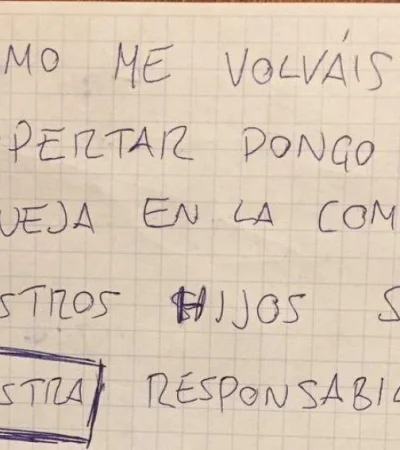 MO ME VOLVÁIS
PERTAR PONGO
UEJA EN LA COM
STROS HIJOS S
STRA RESPONSABIL